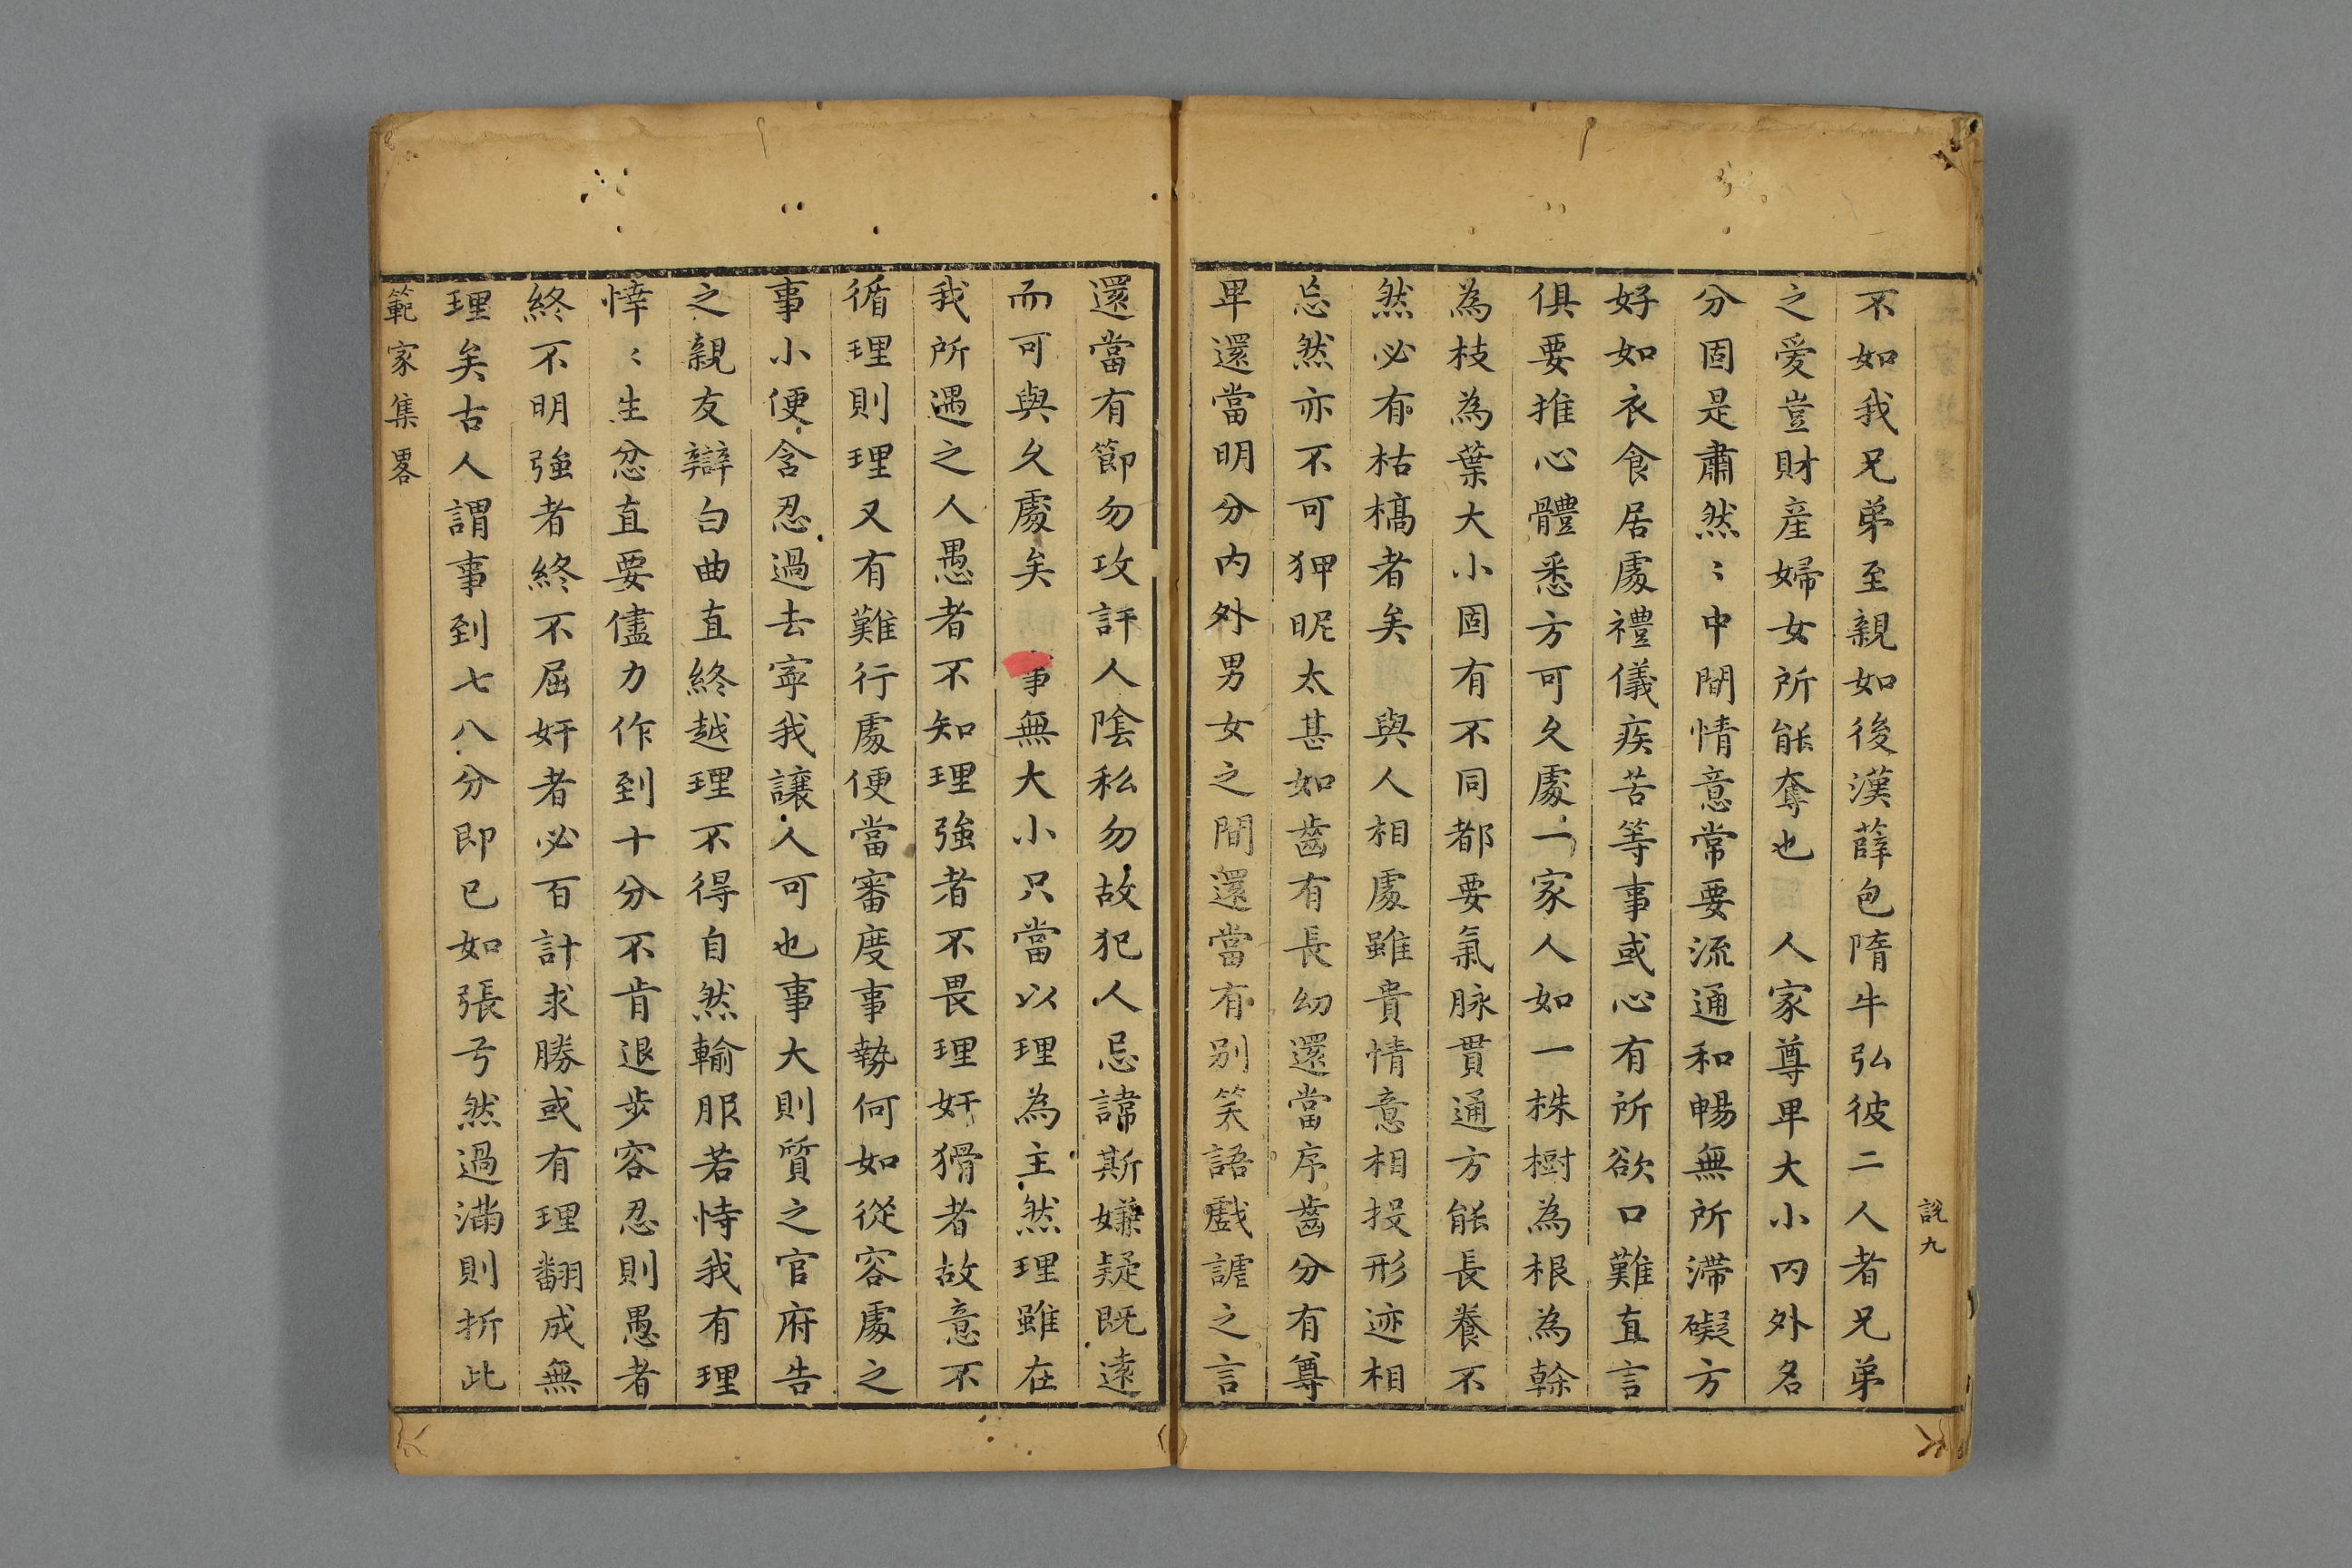 說九
不如我兄弟至親如後漢薛包隋牛弘彼二人者兄弟
之愛豈財産婦女所能奪也 人家尊卑大小内外名
分固是肅然〻中間情意常要流通和暢無所滯礙方
好如衣食居處禮儀疾苦等事或心有所欲口難直言
俱要推心體悉方可久處一家人如一株樹為根為榦
為枝為葉大小固有不同都要氣脉貫通方能長養不
然必有枯槁者矣 與人相處雖貴情意相投形迹相
忘然亦不可狎昵太甚如齒有長幼還當序齒分有尊
卑還當明分内外男女之間還當有别笑語戲謔之言
還當有節勿攻訐人陰私勿故犯人忌諱斯嫌疑既遠
而可與久處矣 事無大小只當以理為主然理雖在
我所遇之人愚者不知理強者不畏理奸猾者故意不
循理則理又有難行處便當審度事勢何如從容處之
事小便含忍過去寧我讓人可也事大則質之官府告
之親友辯白曲直終越理不得自然輸服若恃我有理
悻〻生忿直要儘力作到十分不肯退步容忍則愚者
終不明強者終不屈奸者必百計求勝或有理翻成無
理矣古人謂事到七八分即已如張弓然過滿則折此
範家集畧